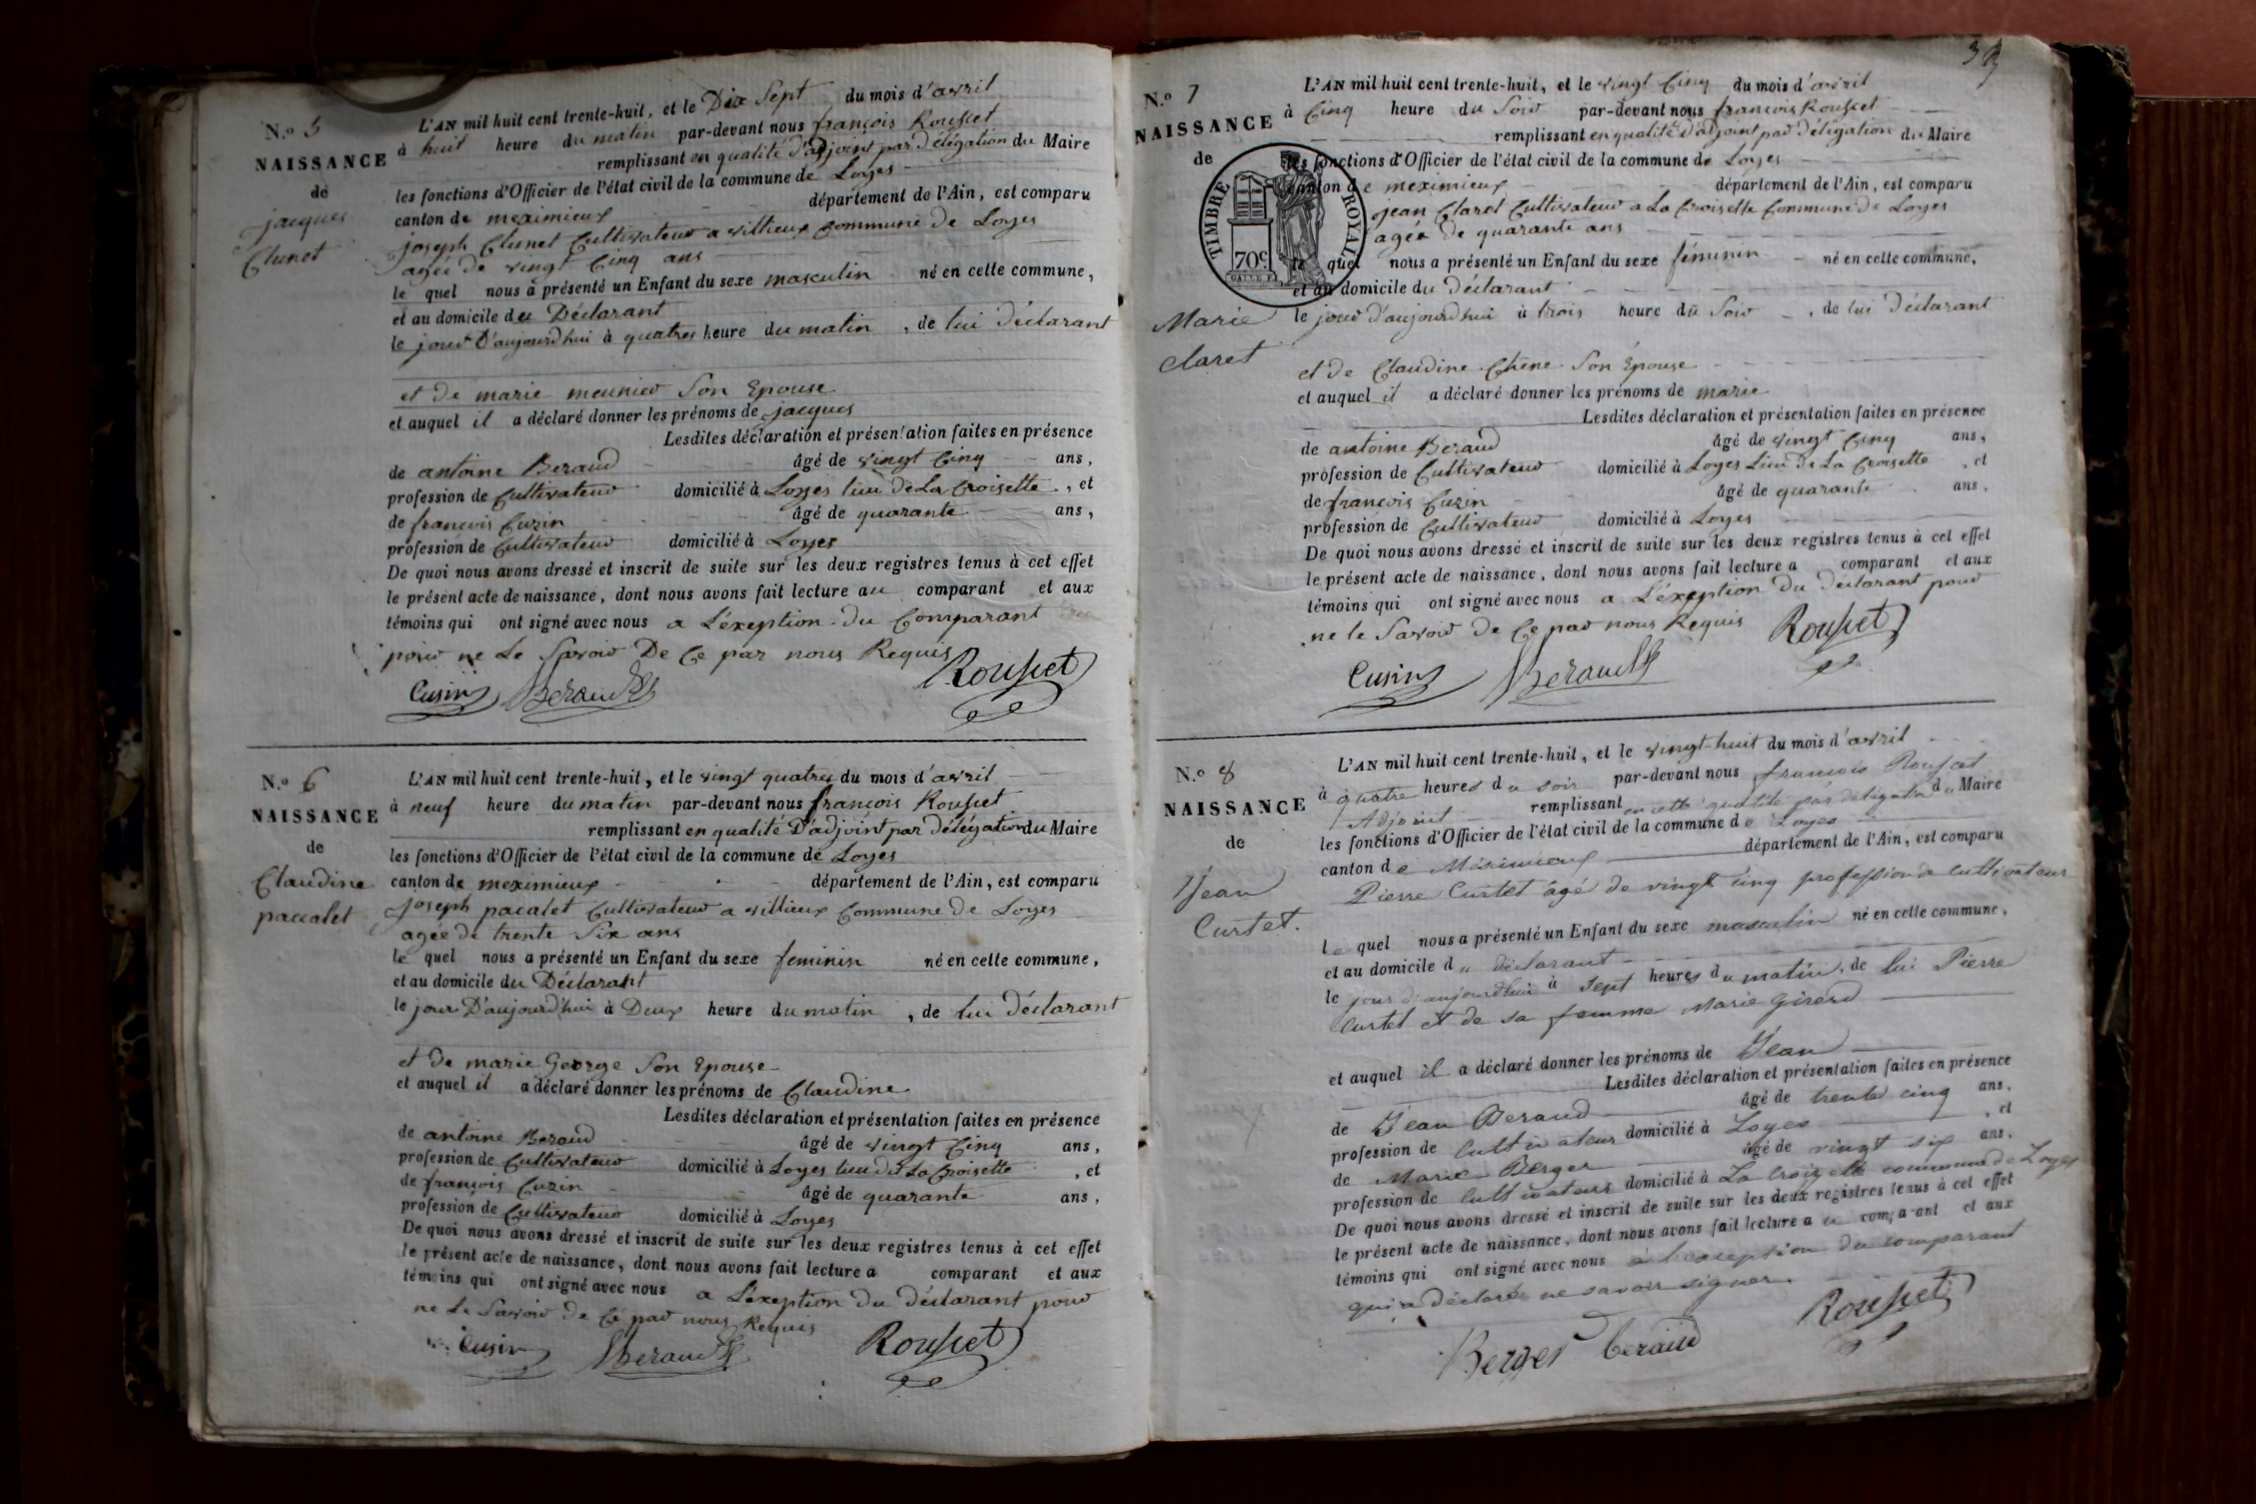 N.o 5
NAISSANCE
de
jacques
Clunet
L'AN mil huit cent trente-huit, et le Dix Sept du mois d'avril
à huit heure du matin par-devant nous françois Rousset
remplissant en qualité d'adjoint par Délégation du Maire
les fonctions d'Officier de l'état civil de la commune de Loyes
canton de meximieux département de l'Ain, est comparu
joseph Clunet Cultivateur a villieux Commune de Loyes
agée de vingt Cinq ans
le quel nous a présenté un Enfant du sexe masculin né en cette commune,
et au domicile du Déclarant
le jour D'aujourd'hui à quatres heure du matin, de lui déclarant
et de marie meunier Son Epouse
et auquel il a déclaré donner les prénoms de jacques
Lesdites déclaration et présentation faites en présence
de antoine Beraud âgé de vingt Cinq ans,
profession de Cultivateur domicilié à Loyes lieu de La Croisette, et
de françois Cuzin âgé de quarante ans,
profession de Cultivateur domicilié à Loyes
De quoi nous avons dressé et inscrit de suite sur les deux registres tenus à cet effet
le présent acte de naissance, dont nous avons fait lecture au comparant et aux
témoins qui ont signé avec nous a L'éxeption du Comparant
pour ne Le Savoir De Ce par nous Requis
Cusin Beraud Rousset
N.o 6
NAISSANCE
de
Claudine
paccalet
L'AN mil huit cent trente-huit, et le vingt quatres du mois d'avril
à neuf heure du matin par-devant nous françois Rousset
remplissant en qualité D'adjoint par Délégation du Maire
les fonctions d'Officier de l'état civil de la commune de Loyes
canton de meximieux département de l'Ain, est comparu
joseph pacalet Cultivateur a villieux Commune de Loyes
agée de trente Six ans
le quel nous a présenté un Enfant du sexe feminin né en cette commune,
et au domicile du Déclarant
le jour D'aujourd'hui à Deux heure du matin, de lui Déclarant
et de marie George Son Epouse
et auquel il a déclaré donner les prénoms de Claudine
Lesdites déclaration et présentation faites en présence
de antoine Beraud âgé de vingt Cinq ans,
profession de Cultivateur domicilié à Loyes lieu de La Croisette, et
de françois Cuzin âgé de quarante ans,
profession de Cultivateur domicilié à Loyes
De quoi nous avons dressé et inscrit de suite sur les deux registres tenus à cet effet
le présent acte de naissance, dont nous avons fait lecture a comparant et aux
témoins qui ont signé avec nous a L'éxeption du déclarant pour
ne Le Savoir de Ce par nous Requis
Cusin Beraud Rousset
N.o 7
NAISSANCE
de
Marie
claret
TIMBRE ROYAL
70c
L'AN mil huit cent trente-huit, et le vingt Cinq du mois d'avril
à Cinq heure du Soir par-devant nous françois Rousset
remplissant en qualité d'adjoint par délégation du Maire
les fonctions d'Officier de l'état civil de la commune de Loyes
canton de meximieux département de l'Ain, est comparu
jean Claret Cultivateur a La Croisette Commune de Loyes
agée de quarante ans
le quel nous a présenté un Enfant du sexe féminin né en cette commune,
et au domicile du déclarant
le jour d'aujourd'hui à trois heure du Soir, de lui déclarant
et de Claudine Chêne Son Epouse
et auquel il a déclaré donner les prénoms de marie
Lesdites déclaration et présentation faites en présence
de antoine Beraud âgé de vingt Cinq ans,
profession de Cultivateur domicilié à Loyes Lieu de La Croisette, et
de françois Cuzin âgé de quarante ans,
profession de Cultivateur domicilié à Loyes
De quoi nous avons dressé et inscrit de suite sur les deux registres tenus à cet effet
le présent acte de naissance, dont nous avons fait lecture a comparant et aux
témoins qui ont signé avec nous a L'éxeption du déclarant pour
ne le Savoir de Ce par nous Requis
Cusin Beraud Rousset
N.o 8
NAISSANCE
de
Jean
Curtet.
L'AN mil huit cent trente-huit, et le vingt-huit du mois d'avril
à quatre heures du soir par-devant nous françois Rousset
Adjoint remplissant en cette qualité par délégation du Maire
les fonctions d'Officier de l'état civil de la commune de Loyes
canton de Méximieux département de l'Ain, est comparu
Pierre Curtet âgé de vingt cinq profession de cultivateur
le quel nous a présenté un Enfant du sexe masculin né en cette commune,
et au domicile du déclarant
le jour d'aujourd'hui à sept heures du matin, de lui Pierre
Curtet et de sa femme Marie Girerd
et auquel il a déclaré donner les prénoms de Jean
Lesdites déclaration et présentation faites en présence
de Jean Beraud âgé de trente cinq ans,
profession de Cultivateur domicilié à Loyes, et
de Marie Berger âgé de vingt six ans,
profession de Cultivateur domicilié à La Croizette commune de Loyes
De quoi nous avons dressé et inscrit de suite sur les deux registres tenus à cet effet
le présent acte de naissance, dont nous avons fait lecture au comparant et aux
témoins qui ont signé avec nous à l'exception du comparant
qui a déclaré ne savoir signer.
Berger beraud Rousset